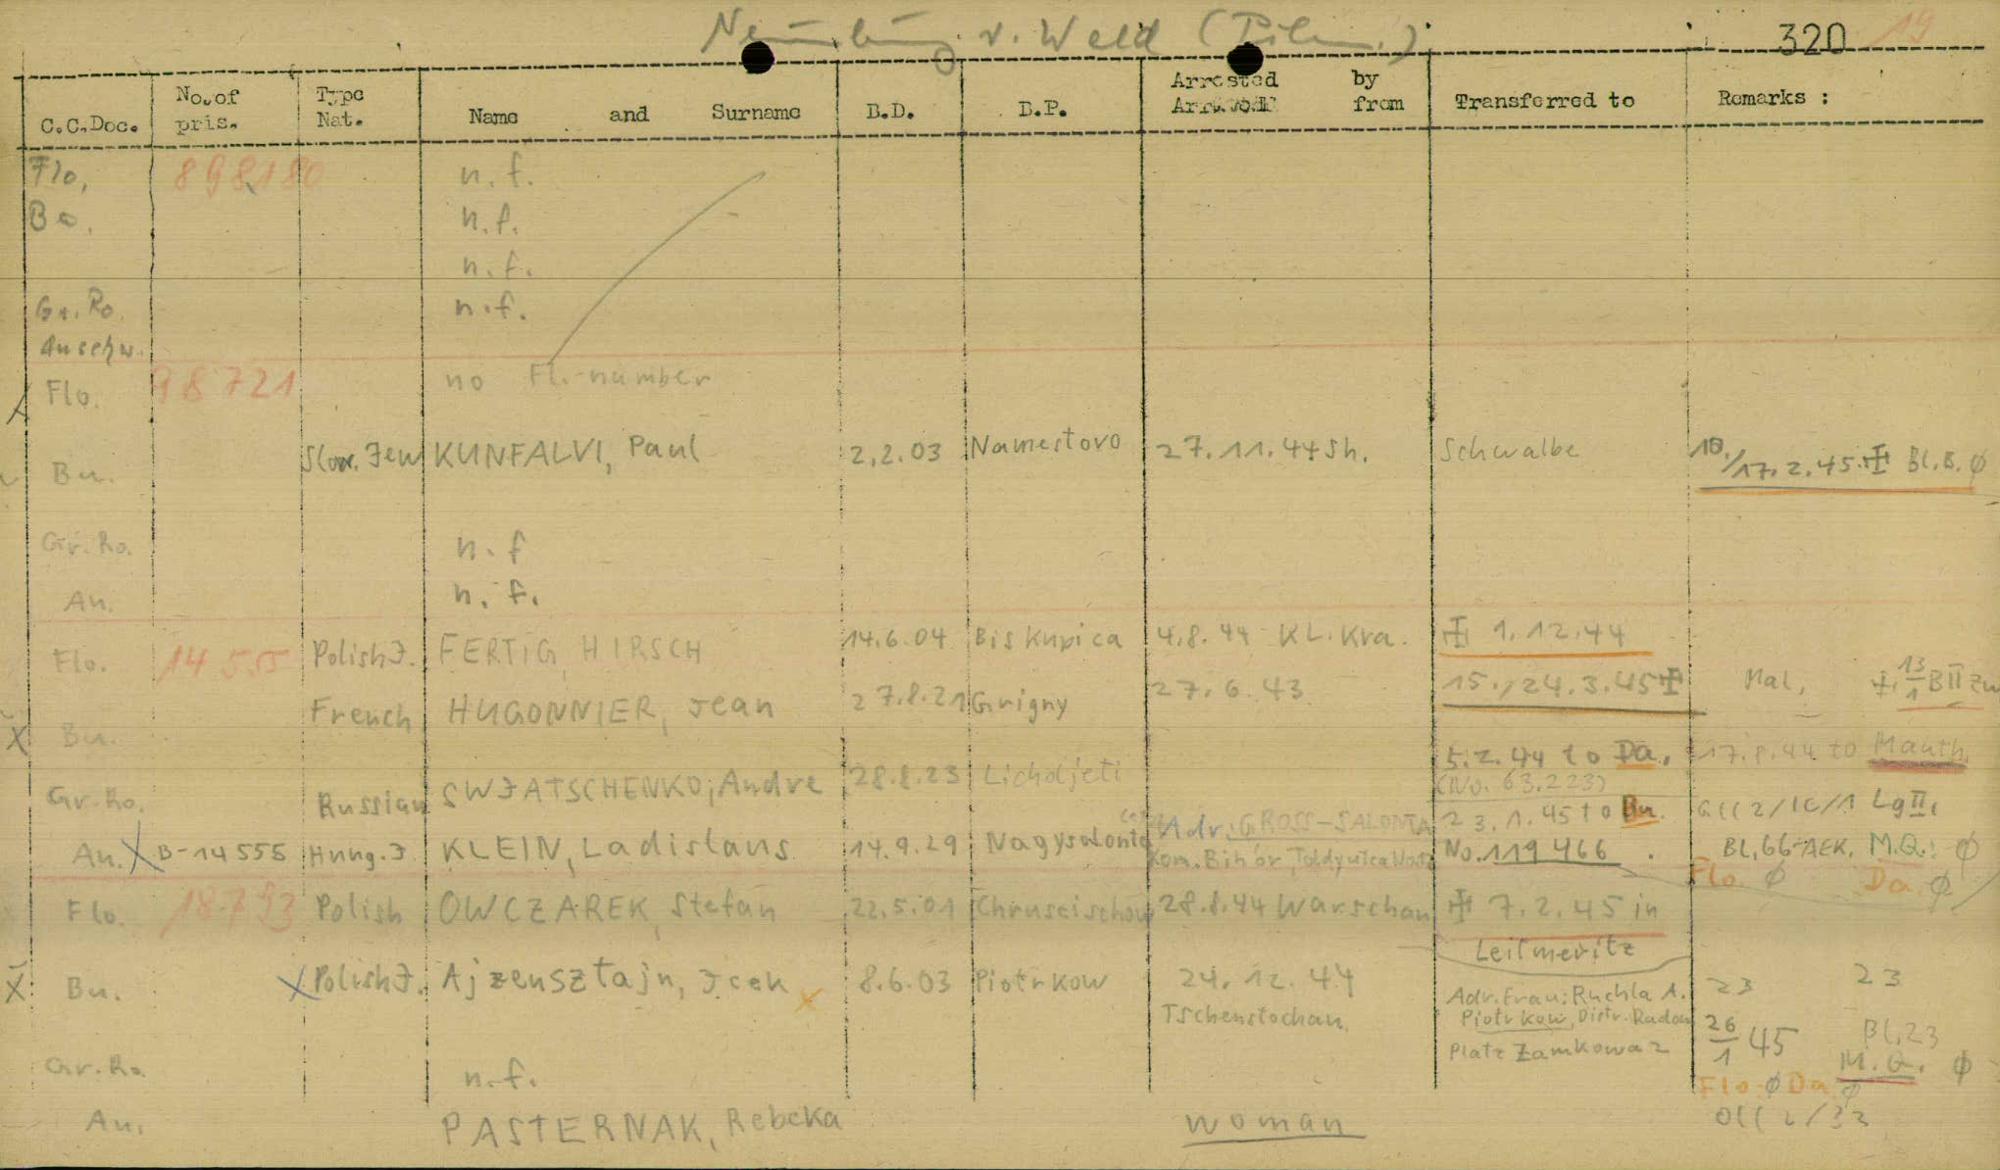 Neunburg v. Wald (Pilm.) 320 19
C.C.Doc. No. of pris. Type Nat. Name and Surname B.D. B.P. Arrested by Arrived from Transferred to Remarks :
Flo, 898180 n. f.
Bu. n.f.
n.f.
Gr. Ro. n.f.
Auschw.
Flo. 98721 no Fl.-number
Bu. Slow. Jew KUNFALVI, Paul 2.2.03 Namestovo 27.11.44 Sh. Schwalbe 10./17.2.45. Bl.B. ϕ
Gr. Ro. n.f
An. n.f.
Flo. 14555 Polish J. FERTIG HIRSCH 14.6.04 Biskupica 4.8.44 KL. Kra. 1.12.44
X Bu. French HUGONNIER, Jean 27.8.21 Grigny 27.6.43 15./24.3.45 Mal, 13/1 B II
Gr. Ro. Russian SWJATSCHENKO, Andre 28.8.23 Licholjeti 5.2.44 to Da. (No. 63.223) 17.8.44 to Mauth.
An. X B-14555 Hung. J KLEIN, Ladislaus 14.9.29 Nagysalonta Adr. GROSS-SALONTA 23.1.45 to Bu. 2/10/1 Lg II,
Kom. Bihor, No. 119466. Bl. 66-AEK. M.Q.: ϕ
Flo. ϕ Da ϕ
Flo. 18793 Polish OWCZAREK, Stefan 22.5.01 28.8.44 Warschau 7.2.45 in
Leitmeritz
X Bu. X Polish J. Ajzensztajn, Jcek x 8.6.03 Piotrkow 24.12.44 Adr. Frau: Ruchla A. 23 23
Tschenstochau Piotrkow, Distr. Radom 26/1 45 Bl. 23
Platz Zamkowa 2 M.G. ϕ
Gr. Ro. n.f. Flo ϕ Da ϕ
An. PASTERNAK, Rebeka woman